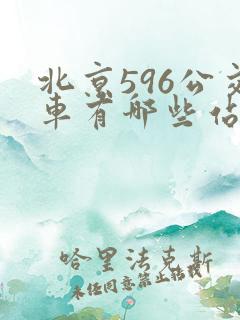 北京596公交
車有哪些佔
哈里法克斯
未经同意禁止转载